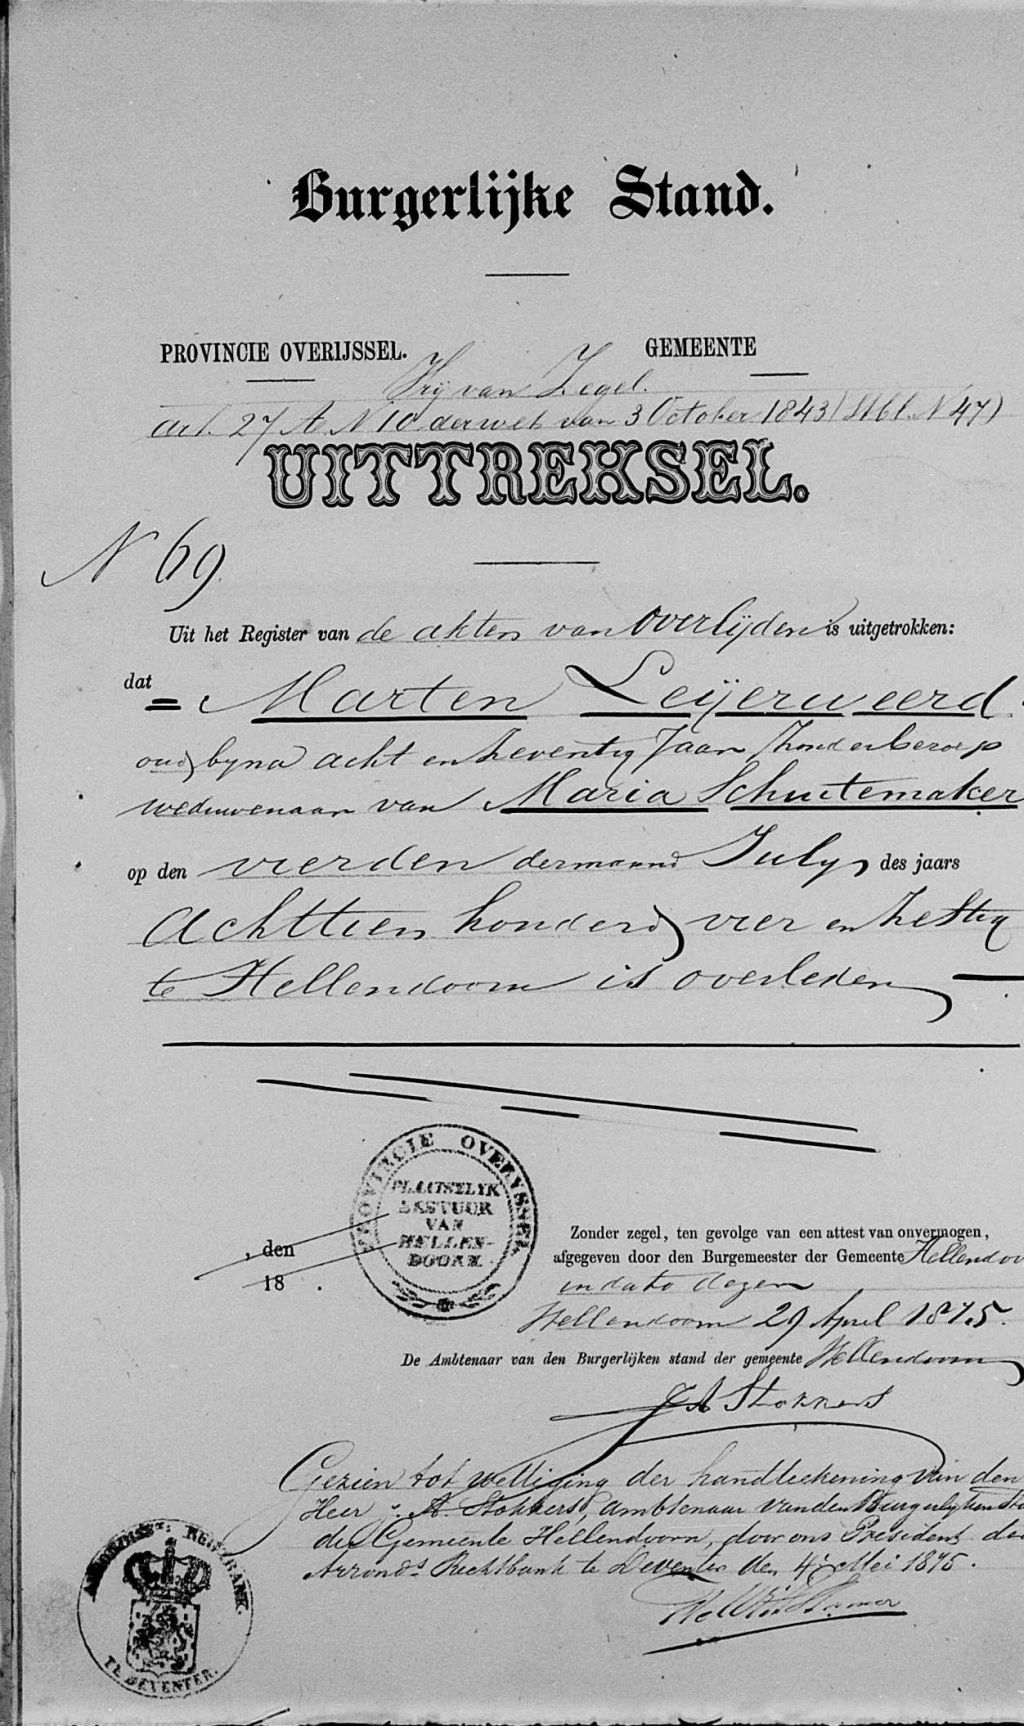 Burgerlijke Stand.
PROVINCIE OVERIJSSEL. GEMEENTE
Vrij van Zegel.
art. 27 A N 10 der wet van 3 October 1843 (Stbl. N 47)
UITTREKSEL.
N 69.
Uit het Register van de akten van Overlijden is uitgetrokken:
dat = Marten Leijerweerd
oud byna acht en zeventig Jaar, zonder beroep
weduwenaar van Maria Schutemaker
op den vierden der maand July, des jaars
Achttien honderd vier en zestig
te Hellendoorn is overleden
PROVINCIE OVERYSSEL
PLAATSELYK
BESTUUR
VAN
HELLEN-
DOORN.
, den
18 .
Zonder zegel, ten gevolge van een attest van onvermogen,
afgegeven door den Burgemeester der Gemeente Hellendoo
in dato dezen
Hellendoorn 29 April 1875.
De Ambtenaar van den Burgerlijken stand der gemeente Hellendoorn
J A Stokkers
Gezien tot wettiging der handteekening van den
Heer J. A. Stokkers, ambtenaar van den Burgerlijken Sta
der Gemeente Hellendoorn, door ons President der
Arronds. Rechtbank te Deventer den 4 Mei 1875.
ARRONDISST. REGTBANK.
TE DEVENTER.